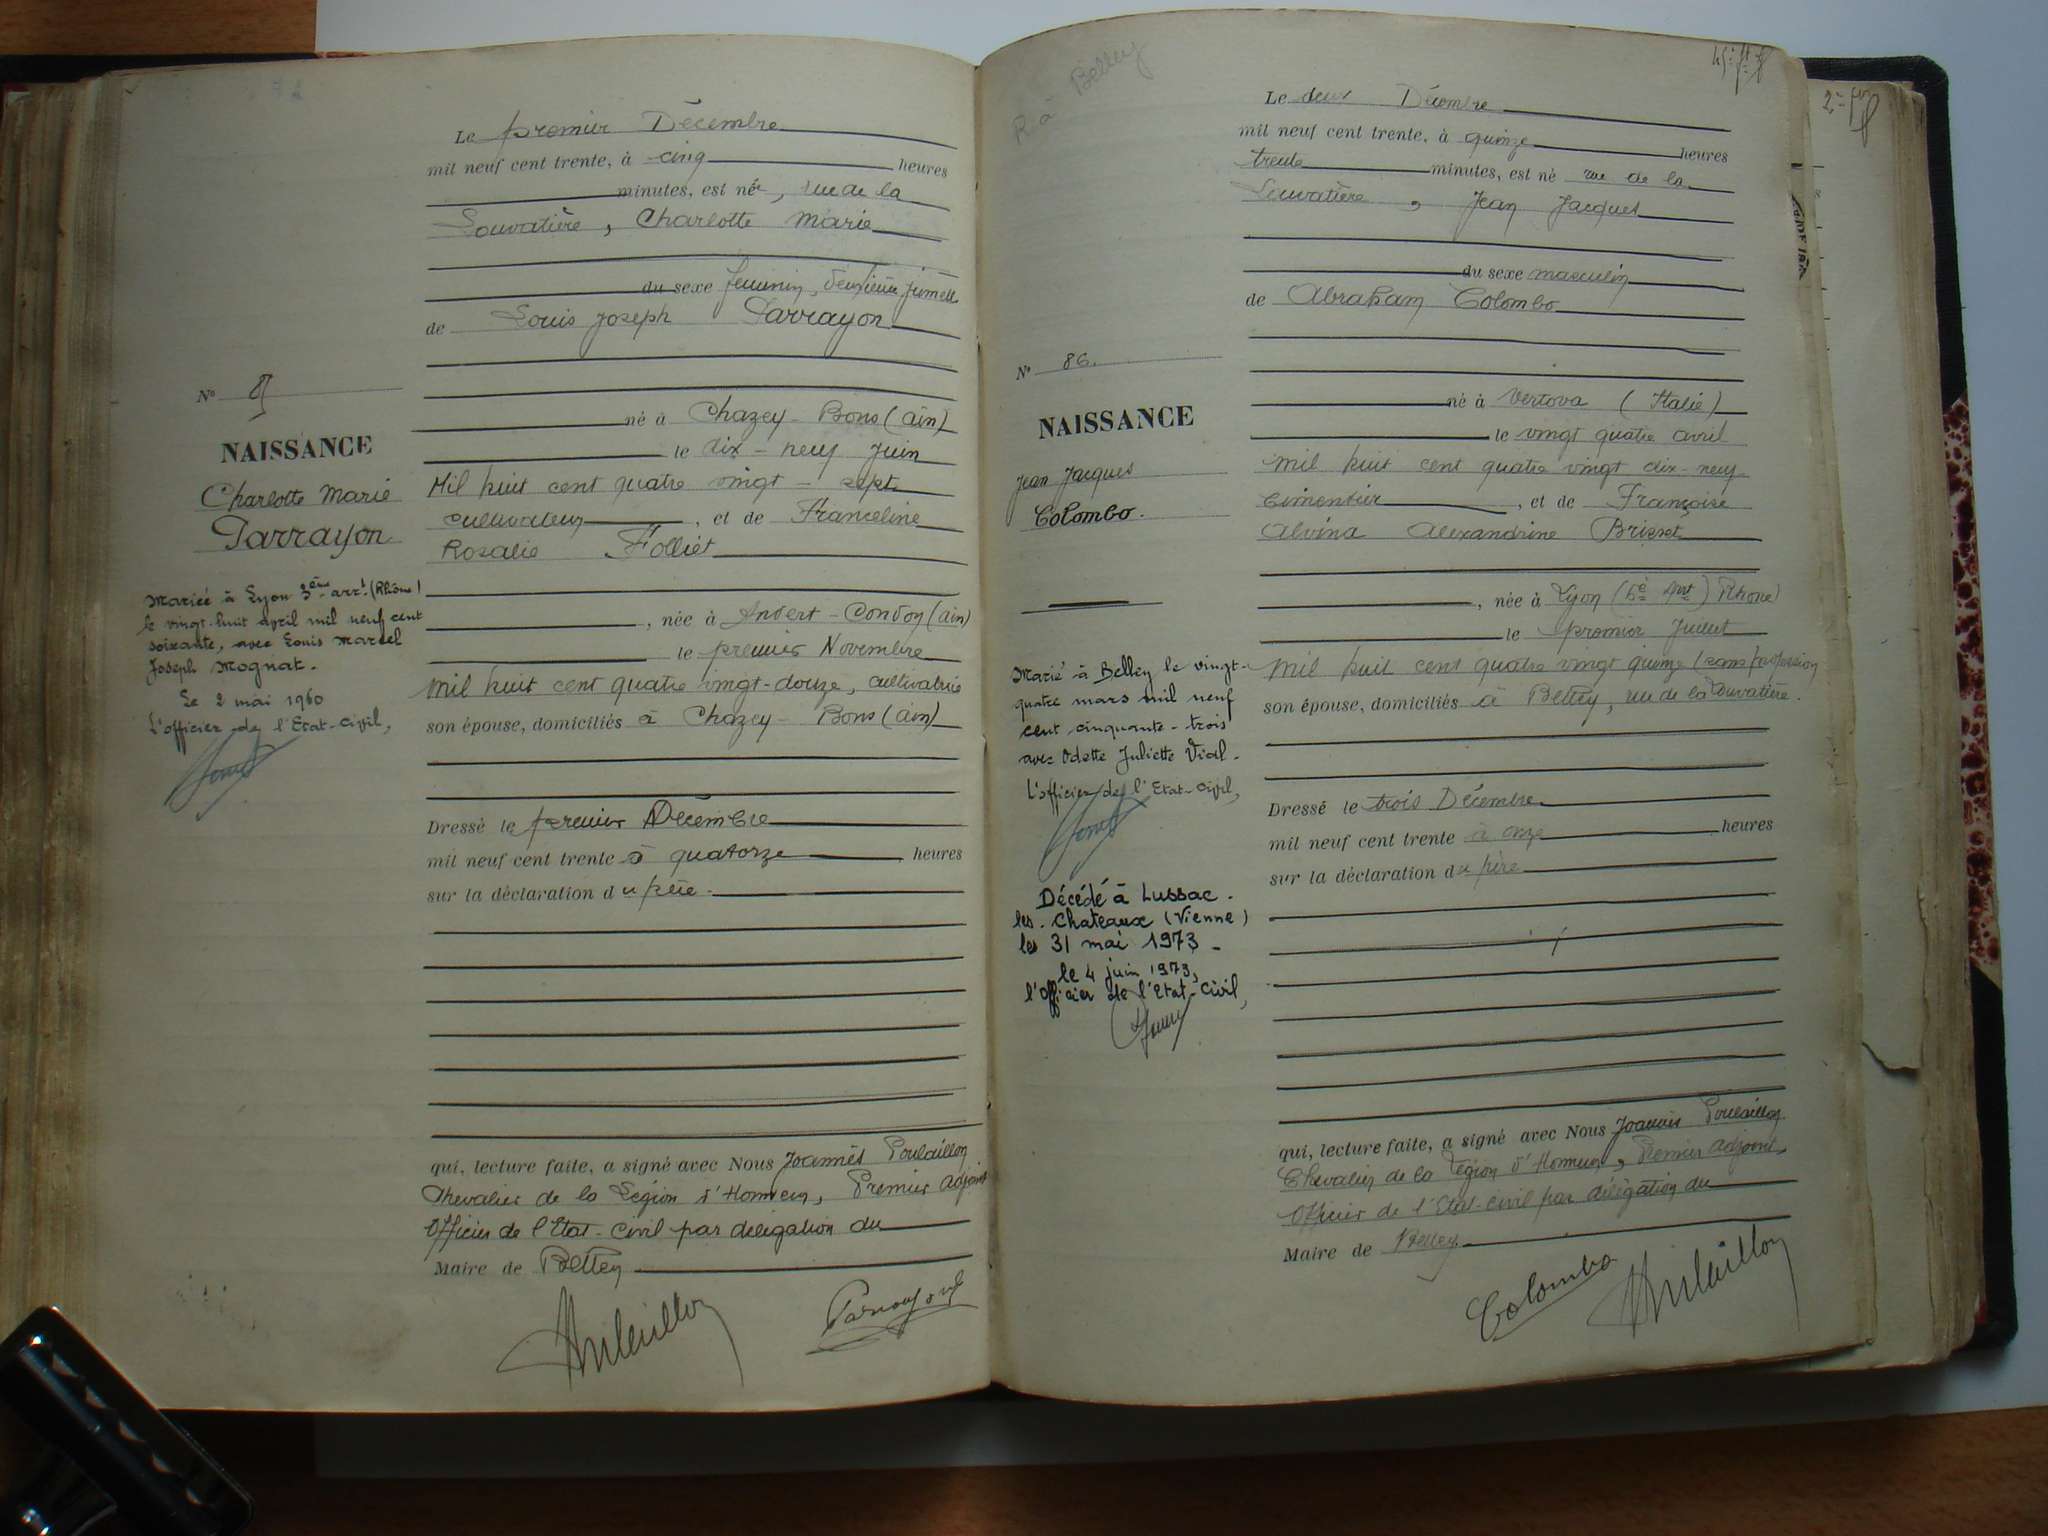 Le premier Décembre
mil neuf cent trente, à cinq heures
minutes, est née, rue de la
Louvatière, Charlotte Marie
du sexe féminin, deuxième jumelle
de Louis Joseph Parrayon
né à Chazey-Bons (ain)
le dix-neuf Juin
Mil huit cent quatre vingt-sept
cultivateur, et de Franceline
Rosalie Folliet
, née à Andert-Condon (ain)
le premier Novembre
mil huit cent quatre vingt-douze, cultivatrice
son épouse, domiciliés à Chazey-Bons (ain)
Dressé le premier Décembre
mil neuf cent trente à quatorze heures
sur la déclaration du père.
qui, lecture faite, a signé avec Nous Joannès Poulaillon
Chevalier de la Légion d'Honneur, Premier adjoint
Officier de l'Etat-Civil par délégation du
Maire de Belley
Poulaillon Parrayon
N° 85
NAISSANCE
Charlotte Marie
Parrayon
Mariée à Lyon 3ème arrt (Rhône)
le vingt-huit avril mil neuf cent
soixante, avec Louis Marcel
Joseph Mognat.
Le 2 mai 1960
L'officier de l'Etat-Civil,
R à Belley
Le deux Décembre
mil neuf cent trente, à quinze heures
trente minutes, est né rue de la
Louvatière, Jean Jacques
du sexe masculin
de Abraham Colombo
né à Vertova (Italie)
le vingt quatre avril
mil huit cent quatre vingt dix-neuf
cimentier, et de Françoise
Alvina Alexandrine Brisset
, née à Lyon ( Art) Rhône
le premier Juillet
mil huit cent quatre vingt quinze sans profession
son épouse, domiciliés à Belley, rue de la Louvatière.
Dressé le trois Décembre
mil neuf cent trente à onze heures
sur la déclaration du père
qui, lecture faite, a signé avec Nous Joannès Poulaillon
Chevalier de la Légion d'Honneur, Premier adjoint,
Officier de l'Etat-Civil par délégation du
Maire de Belley
Colombo Poulaillon
N° 86.
NAISSANCE
Jean Jacques
Colombo.
Marié à Belley le vingt-
quatre mars mil neuf
cent cinquante-trois
avec Odette Juliette Vial.
L'officier de l'Etat-Civil,
Décédé à Lussac-
les-Chateaux (Vienne)
le 31 mai 1973.
le 4 juin 1973,
l'Officier de l'Etat-Civil,